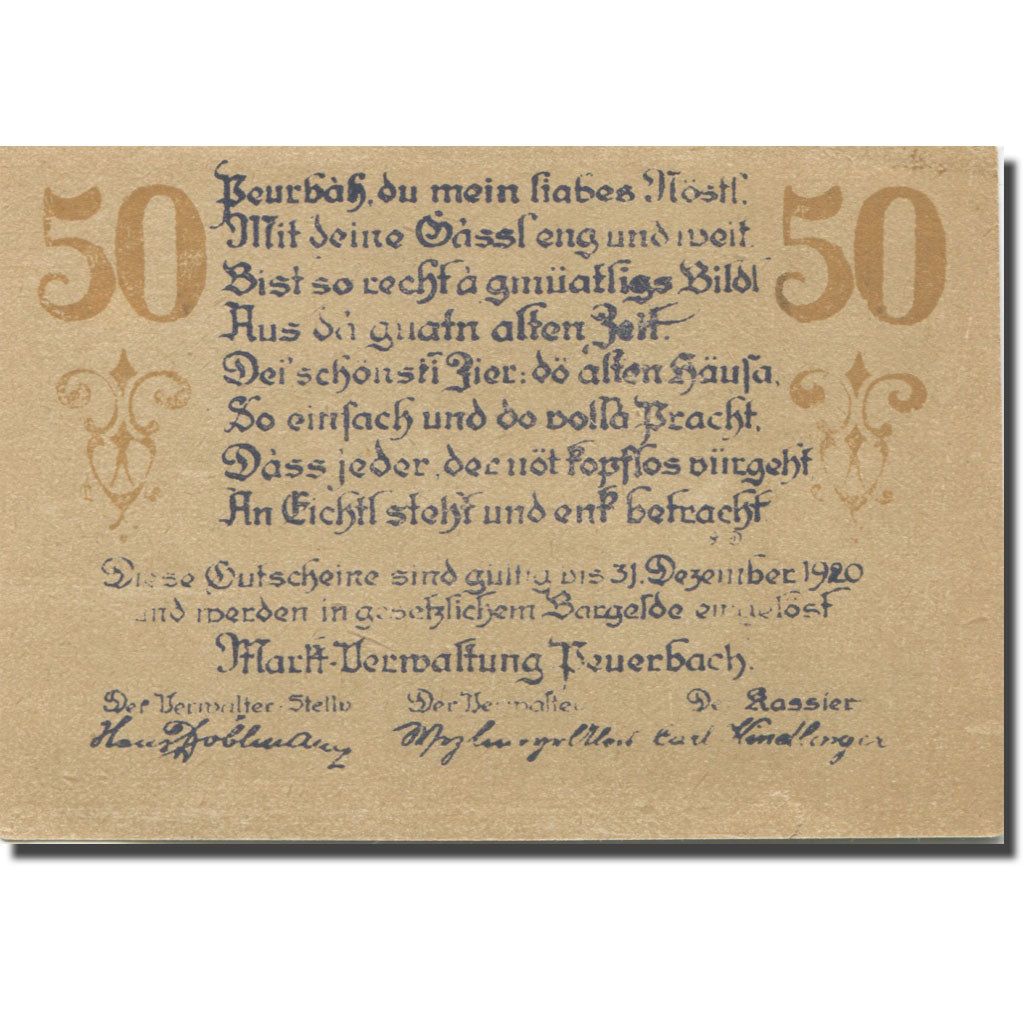 50 50
Peurbàh, du mein liabes Nöstl,
Mit deine Gàssl eng und weit.
Bist so recht à gmüatligs Bildl
Aus dà guatn alten Zeit.
Dei' schönsti Zier: dö alten Häusa,
So einfach und do vollà Pracht,
Dàss jeder, der nöt kopflos vürgeht
An Eichtl steht und enk betracht
Diese Gutscheine sind gültig bis 31. Dezember 1920
und werden in gesetzlichem Bargelde eingelöst
Markt-Verwaltung Peuerbach.
Der Verwalter-Stellv Der Verwalter Der Kassier
Hans Karl